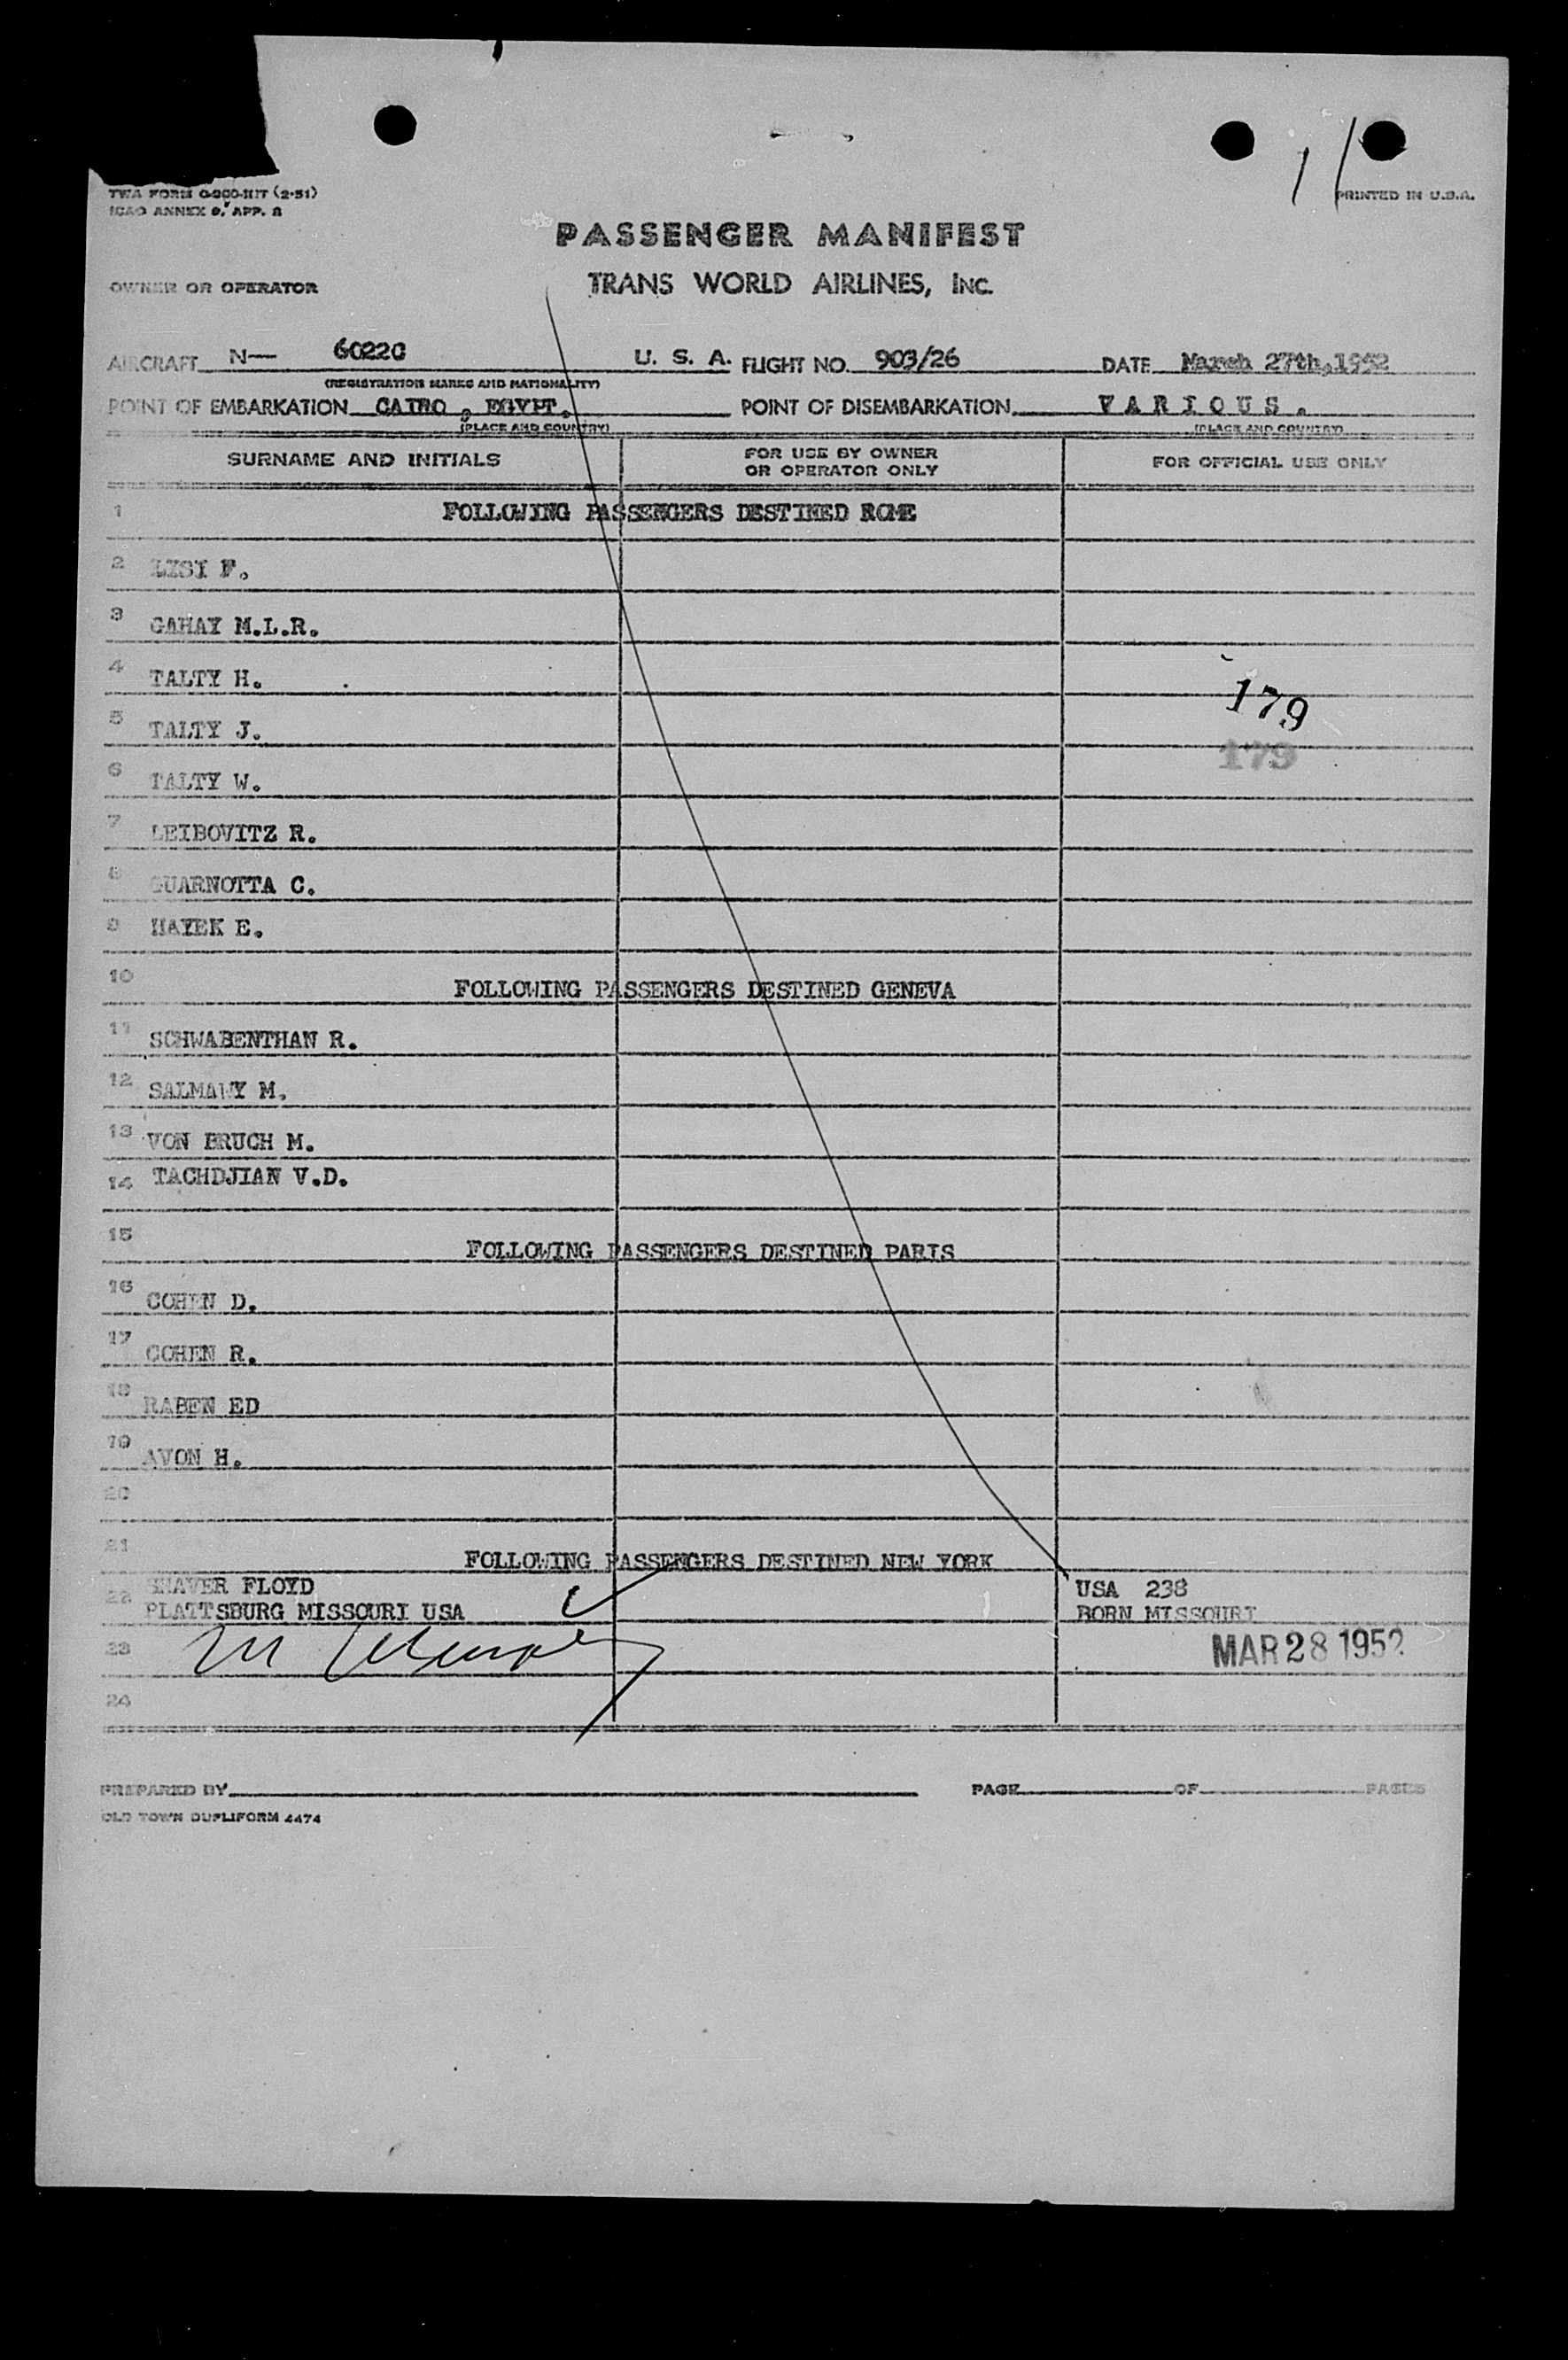 TWA FORM
(2-51)
ICAO ANNEX 9, APP. 
PRINTED IN U.S.A.
PASSENGER MANIFEST
OWNER OR OPERATOR TRANS WORLD AIRLINES, INC.
AIRCRAFT N— 6022C U. S. A. FLIGHT NO. 903/26 DATE March 27th, 1952
(REGISTRATION MARKS AND NATIONALITY)
POINT OF EMBARKATION CAIRO, EGYPT. POINT OF DISEMBARKATION VARIOUS.
(PLACE AND COUNTRY) (PLACE AND COUNTRY)
SURNAME AND INITIALS FOR USE BY OWNER OR OPERATOR ONLY FOR OFFICIAL USE ONLY
1 FOLLOWING PASSENGERS DESTINED ROME
2 LISI F.
3 GAHAY M.L.R.
4 TALTY H.
179
5 TALTY J.
179
6 TALTY W.
7 LEIBOVITZ R.
8 GUARNOTTA C.
9 HAYEK E.
10 FOLLOWING PASSENGERS DESTINED GENEVA
11 SCHWABENTHAN R.
12 SALMAWY M.
13 VON BRUCH M.
14 TACHDJIAN V.D.
15 FOLLOWING PASSENGERS DESTINED PARIS
16 COHEN D.
17 COHEN R.
18 RABEN ED
19 AVON H.
20
21 FOLLOWING PASSENGERS DESTINED NEW YORK
22 SHAVER FLOYD USA 238
PLATTSBURG MISSOURI USA BORN MISSOURI
23 MAR 28 1952
24
PREPARED BY PAGE OF PAGES
OLD TOWN DUPLIFORM 4474